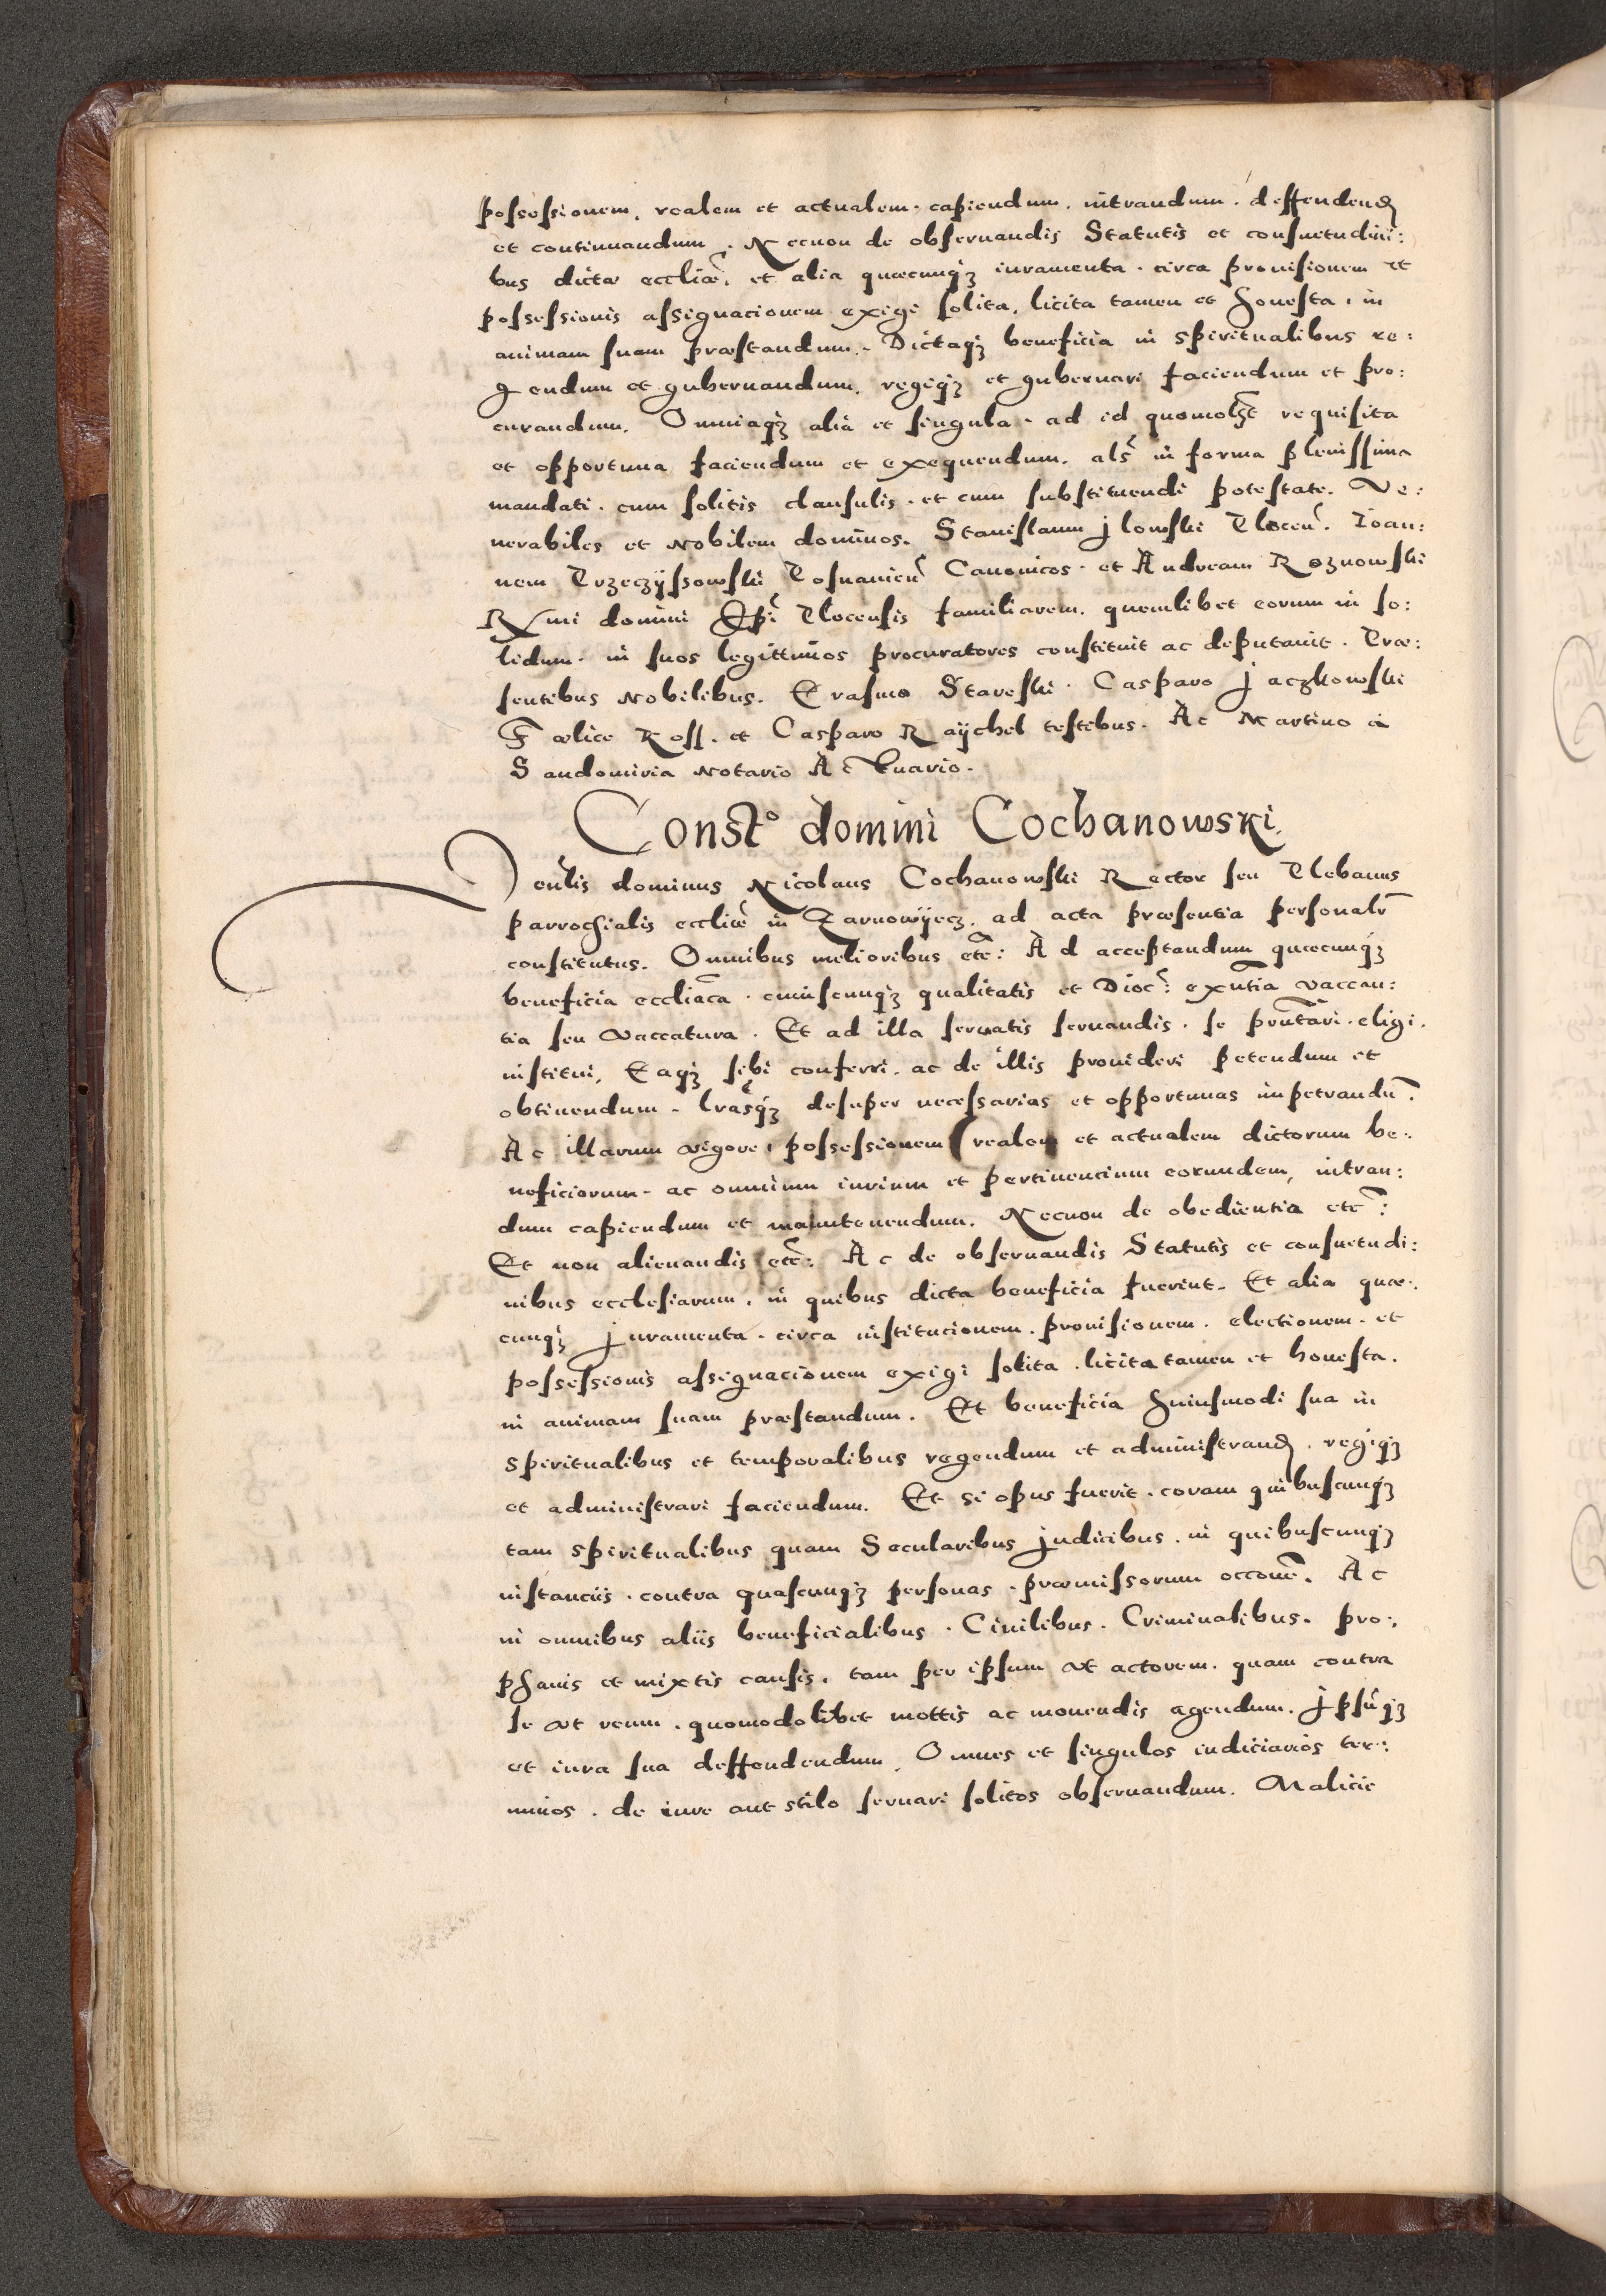 possessionem, realem et actualem. capiendum. intrandum. deffendend
et continuandum. Necnon de obseruandis Statutis et consuetudini:
bus dictæ eccliæ. et alia quæcunqȝ iuramenta. circa prouisionem et
possessionis assignacionem exigi solita. licita tamen et honesta. in
animam suam præstandum. Dictaqȝ beneficia in spiritualibus re:
gendum et gubernandum. regiqȝ et gubernari faciendum et pro:
curandum. Omniaqȝ alia et singula. ad id quomolȝt requisita
et opportuna faciendum et exequendum. als in forma plenissima
mandati. cum solitis clausulis. et cum substituendi potestate. Ve:
nerabiles et Nobilem dominos. Stanislaum Jlowski Plocen. Ioan:
nem Przeczÿssowski Posnanien Canonicos. et Andream Roznowski
Rxmi domini Epi Plocensis familiarem. quemlibet eorum in so:
lidum. in suos legittimos procuratores constituit ac deputauit. Præ:
sentibus Nobilibus. Erasmo Stareski. Casparo Jaczkowski
Fœlice Koss. et Casparo Raÿchel testibus. Ac Martino à
Sandomiria Notario Actuario.
Constᵒ domini Cochanowski.
Venlis dominus Nicolaus Cochanowski Rector seu Plebanus
parrochialis eccliæ in Zarnowÿecz. ad acta præsentia personalr
constitutus. Omnibus melioribus etc: Ad acceptandum quæcunqȝ
beneficia eccliaca. cuiuscunqȝ qualitatis et Dioc: exntia vaccan:
tia seu Vaccatura. Et ad illa seruatis seruandis. se prntari. eligi.
institui. Eaqȝ sibi conferri. ac de illis prouideri petendum et
obtinendum. lrasqȝ desuper necessarias et opportunas impetrandu.
Ac illarum vigore, possessionem (realem et actualem dictorum be:
neficiorum. ac omnium iurium et pertinencium eorundem, intran:
dum capiendum et manutenendum. Necnon de obedientia etc:
Et non alienandis etc: Ac de obseruandis Statutis et consuetudi:
nibus ecclesiarum. in quibus dicta beneficia fuerint. Et alia quæ:
cunqȝ Juramenta. circa institucionem. prouisionem. electionem. et
possessionis assignacionem exigi solita. licita tamen et honesta.
in animam suam præstandum. Et beneficia huiusmodi sua in
spiritualibus et temporalibus regendum et administrand. regiqȝ
et administrari faciendum. Et si opus fuerit. coram quibuscunqȝ
tam spiritualibus quam Secularibus Judicibus. in quibuscunqȝ
instanciis. contra quascunqȝ personas. præmissorum occone. Ac
in omnibus aliis beneficialibus. Ciuilibus. Criminalibus. pro:
phanis et mixtis causis. tam per ipsum vt actorem. quam contra
se vt reum. quomodolibet mottis ac mouendis agendum. Jpsuqȝ
et iura sua deffendendum. Omnes et singulos iudiciarios ter:
minos. de iure aut stilo seruari solitos obseruandum. Malicie